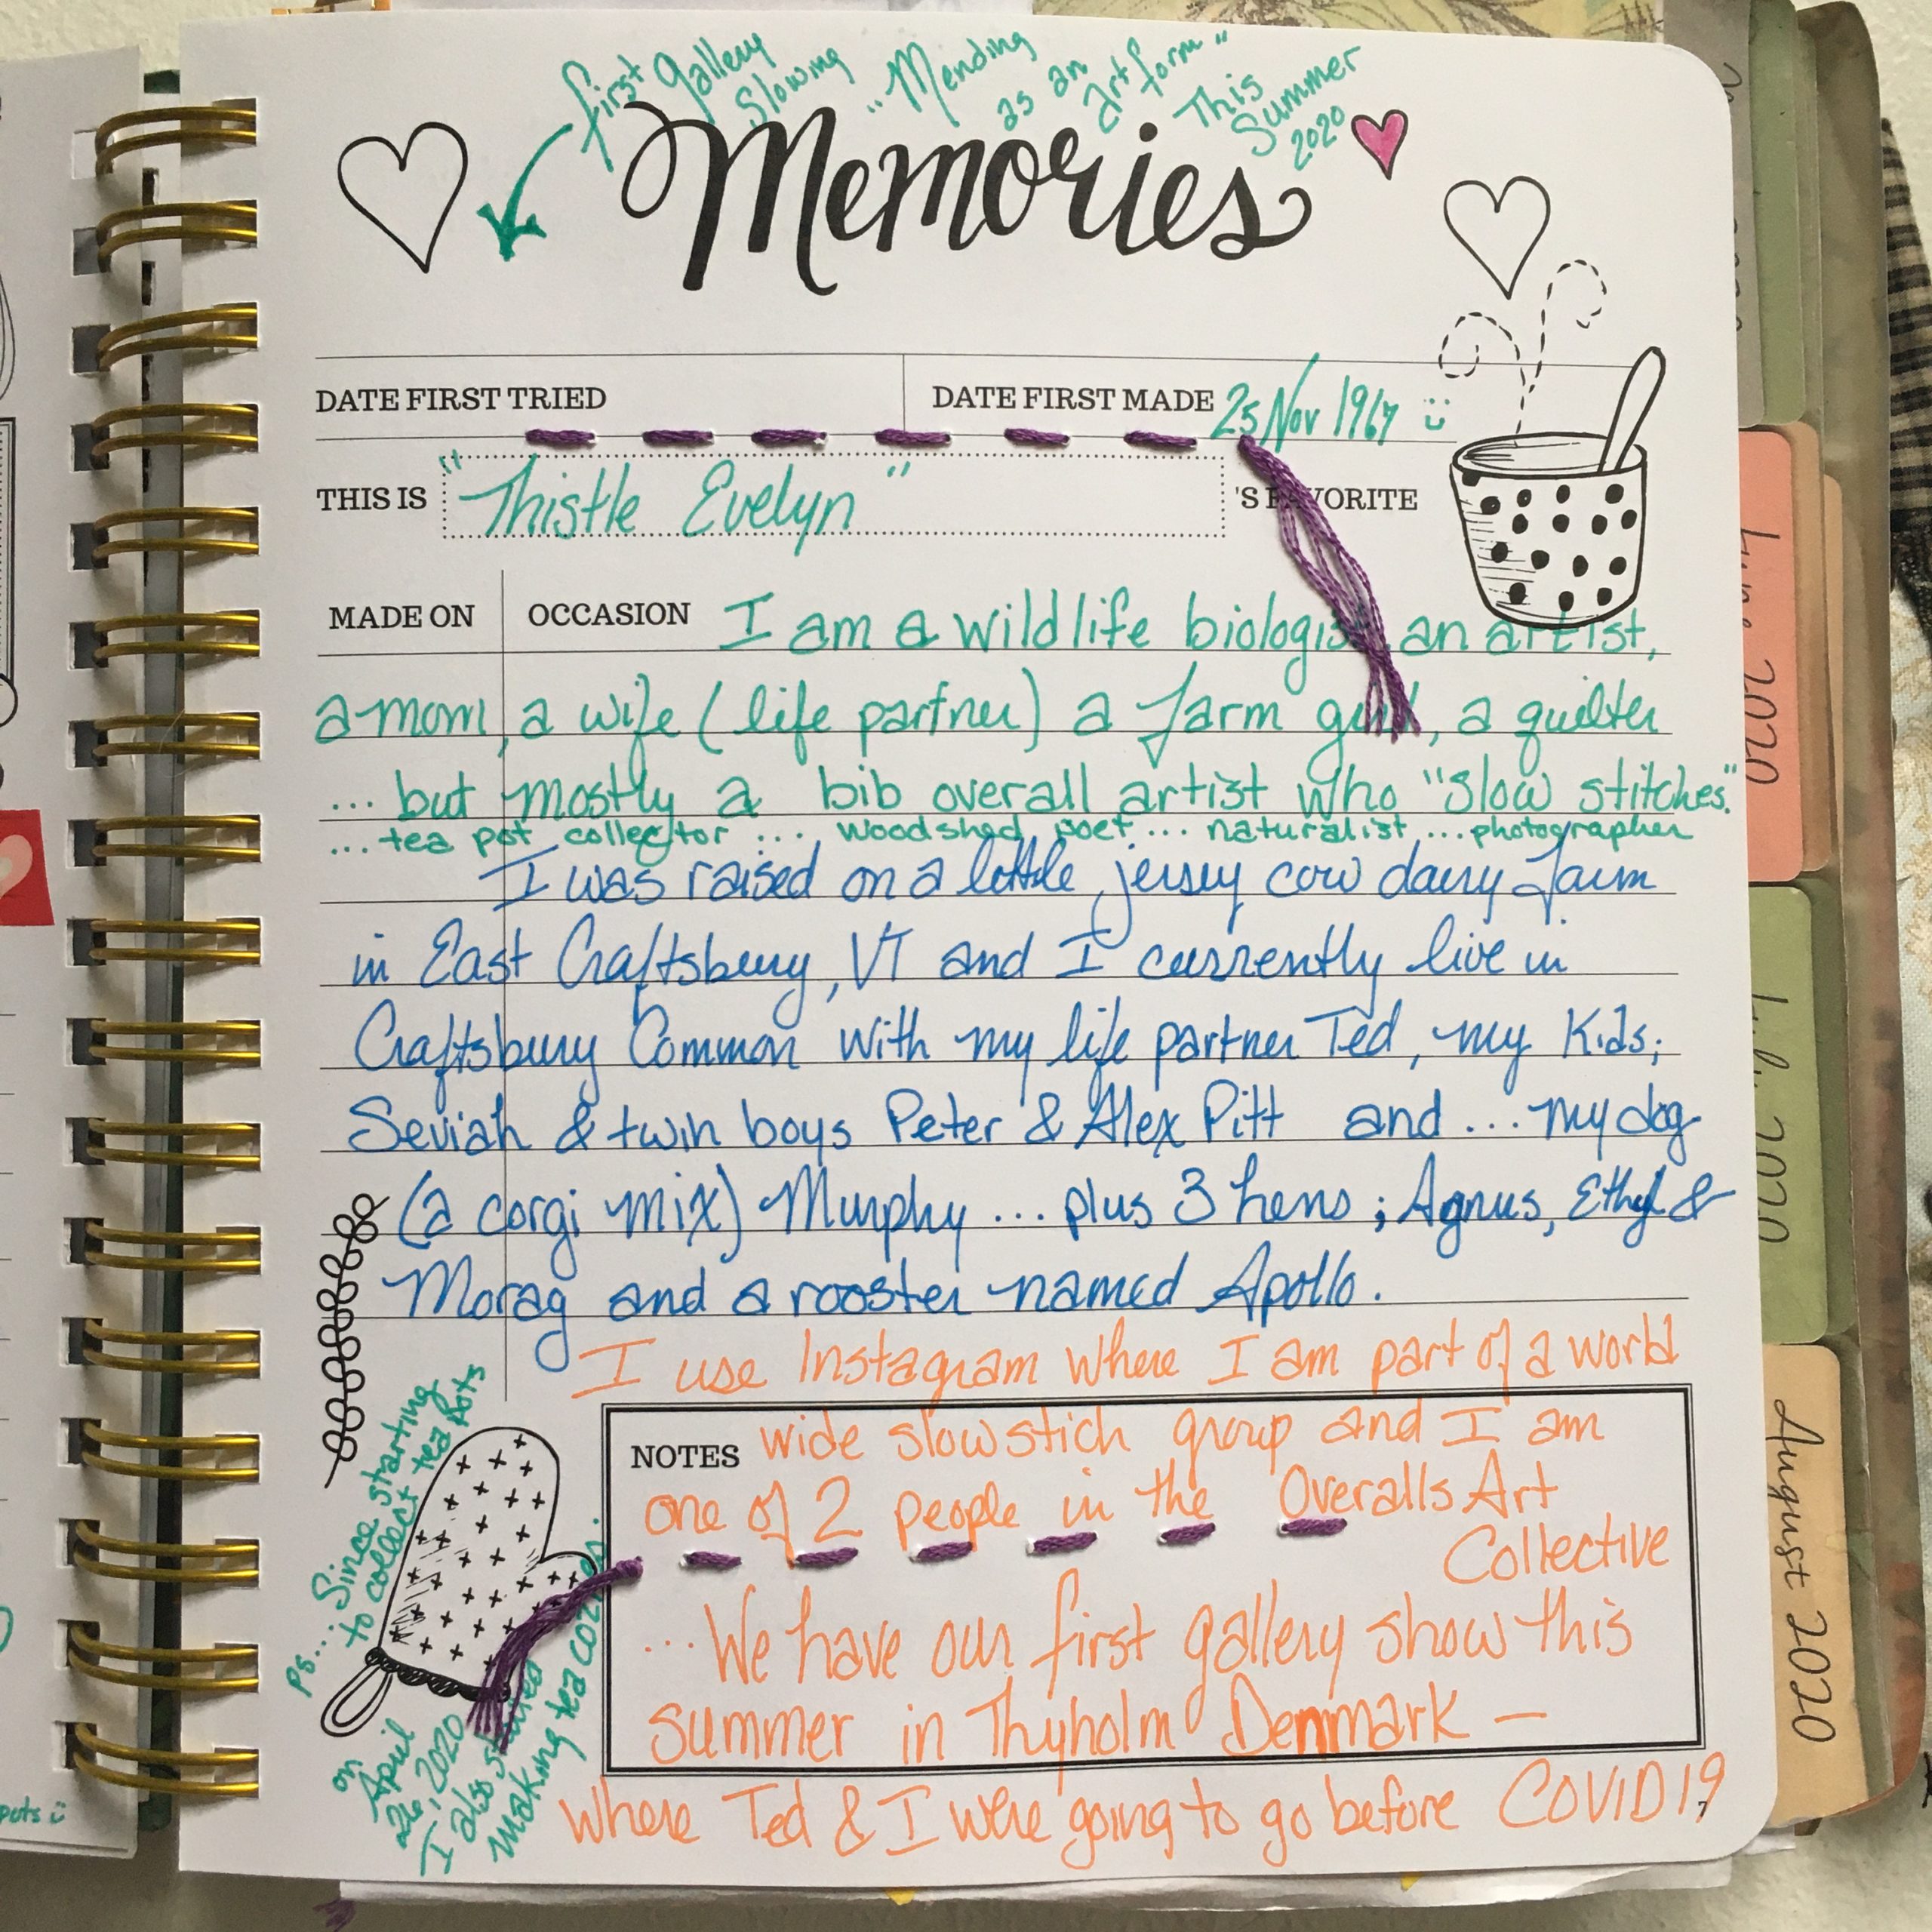 first gallery
Slowing
"Mending
as an
art form"
This
Summer
2020
Memories
DATE FIRST TRIED
DATE FIRST MADE 25 Nov 1967
THIS IS "Thistle Evelyn" 'S FAVORITE
MADE ON OCCASION I am a wildlife biologist, an artist,
a mom, a wife (life partner) a farm girl, a quilter
... but mostly a bib overall artist who "slow stitches."
... tea pot collector ... woodshed poet ... naturalist ... photographer
I was raised on a little jersey cow dairy farm
in East Craftsbury, VT and I currently live in
Craftsbury Common with my life partner Ted, my Kids;
Seviah & twin boys Peter & Alex Pitt and ... my dog
(a corgi mix) Murphy ... plus 3 hens; Agnus, Ethyl &
Morag and a rooster named Apollo.
I use Instagram where I am part of a world
NOTES wide slow stich group and I am
one of 2 people in the Overalls Art
Collective
... We have our first gallery show this
summer in Thyholm Denmark —
where Ted & I were going to go before COVID19
Ps... Since starting
to collect tea pots
on
April
26, 2020
I also started
making tea cozies.
pots
July 2020
July 2020
August 2020